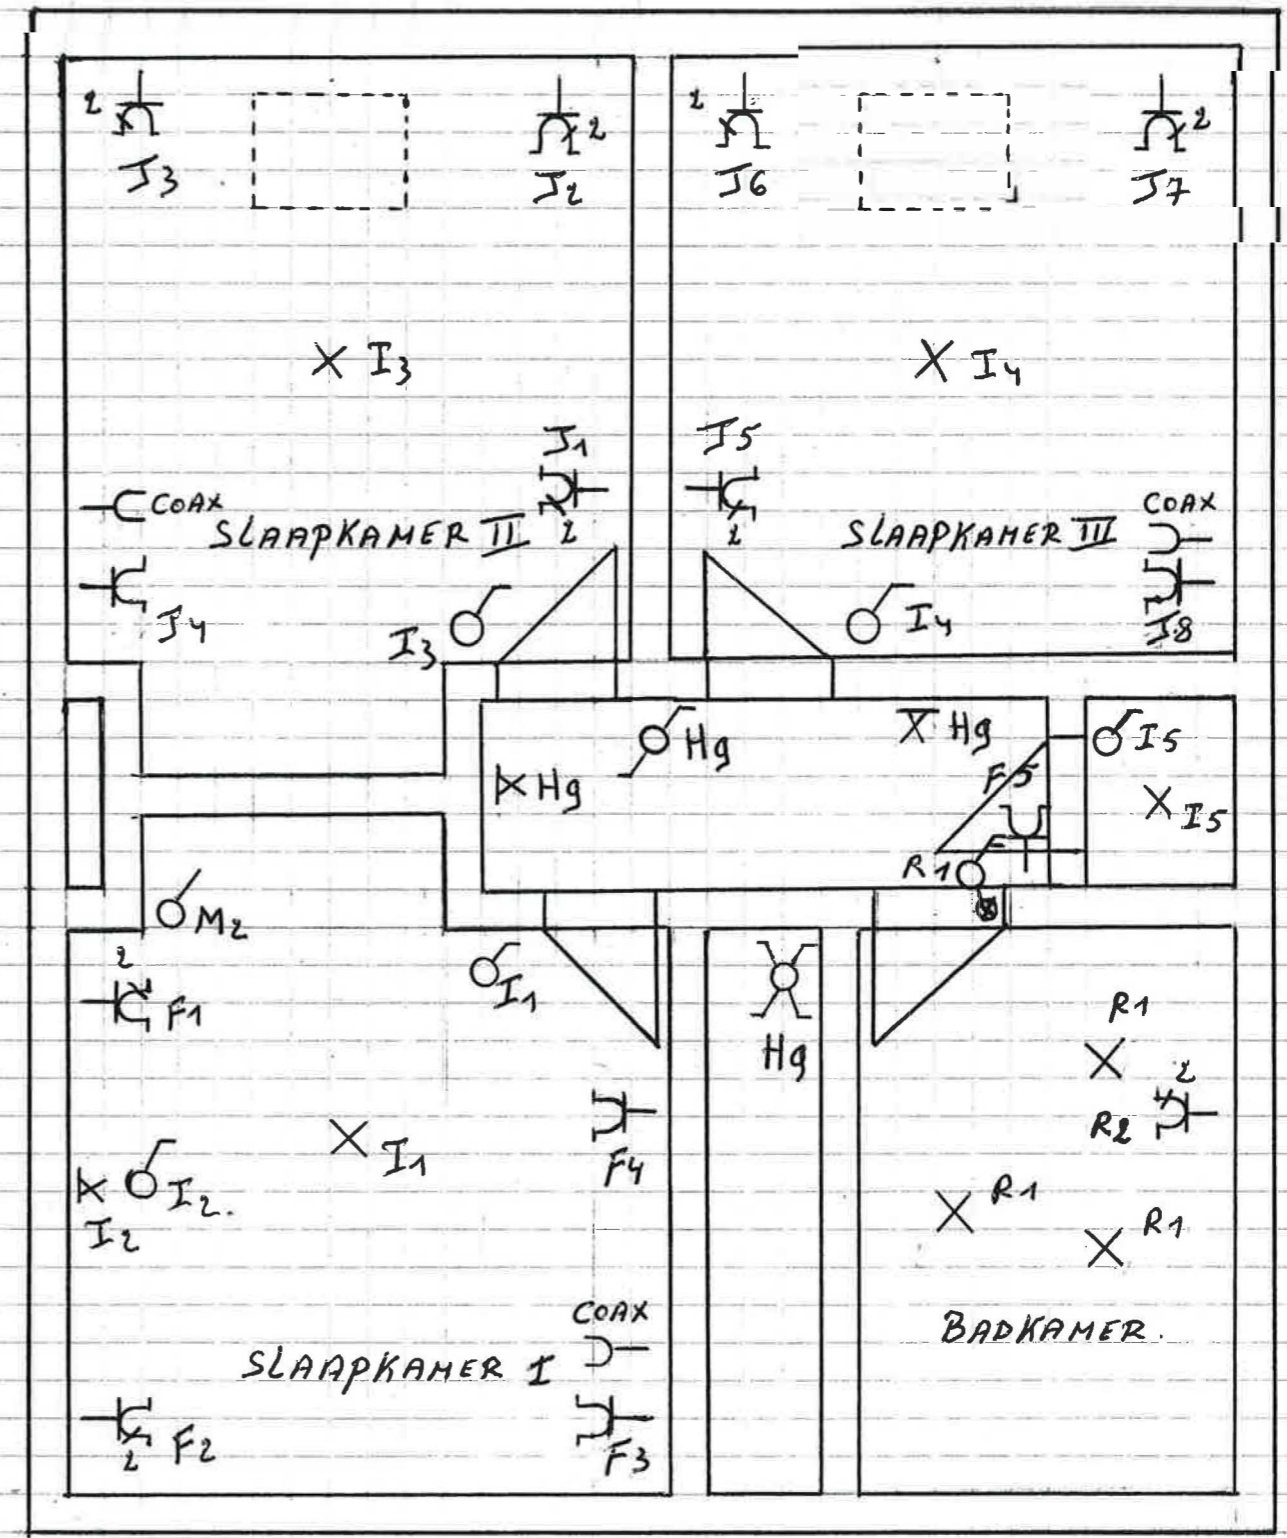 2
J3
2
J2
2
J6
2
J7
I3
I4
J1
2
J5
2
COAX
SLAAPKAMER II
J4
I3
SLAAPKAMER III
COAX
J8
I4
Hg
Hg
Hg
F5
I5
I5
R1
M2
2
F1
I1
Hg
R1
2
R2
F4
I1
I2.
I2
R1
R1
COAX
BADKAMER.
SLAAPKAMER I
F2
2
F3